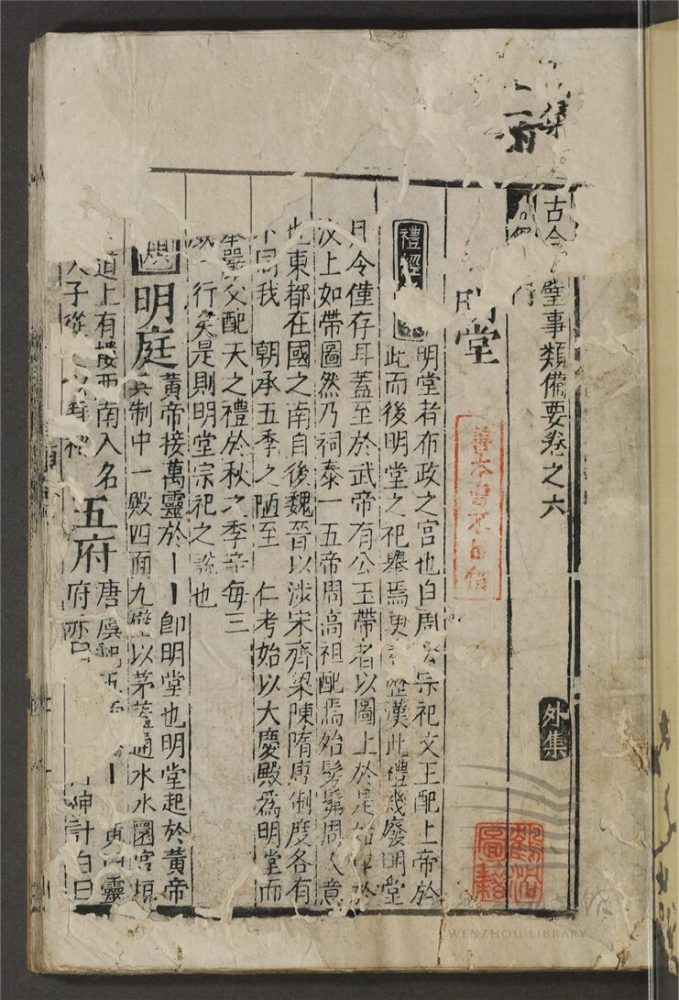 集
古今 璧事類備要卷之六
外集
明堂
禮經
明堂者布政之宮也自周 宗祀文王配上帝於
此而後明堂之祀舉焉 漢此禮幾廢明堂
月令僅存耳蓋至於武帝有公玉帶者以圖上於是
汶上如帶圖然乃祠泰一五帝周高祖配焉始髣髴周人意
也東都在國之南自後魏晉以涉宋齊梁陳隋唐制度各有
不同我 朝承五季之陋至 仁考始以大慶殿爲明堂而
嚴父配天之禮於秋之季 每三
行矣是則明堂宗祀之說也
明庭 黃帝接萬靈於丨丨即明堂也明堂起於黃帝
制中一殿四面 以茅蓋通水水圜宮垣
道上有樓西南入名
五府 唐虞 五 丨 靈
府 計白日
善本書
WENZHOU LIBRARY